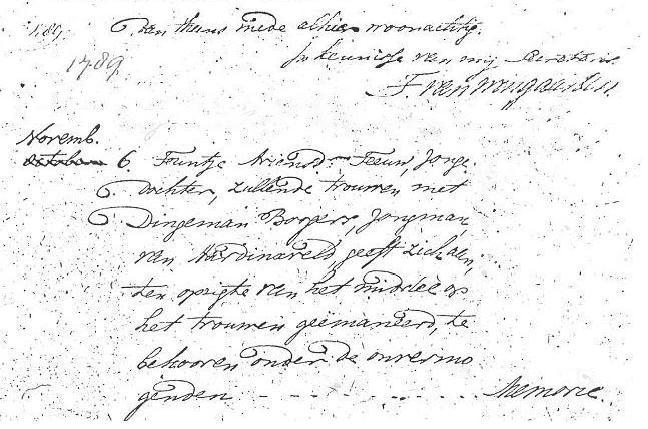 1789. van thans mede alhier woonachtig.
1789
In kennisse van mij Secretaris
F. van
Novemb.
October 6. Teuntje Ariensd. Teeuw, Jonge
dochter, zullende trouwen met
Dingeman Borgers, Jongman,
van Hardinxveld, geeft zich aen,
ten opzigte van het middel op
het trouwen geëmaneerd, te
behooren onder de onvermo
genden - - - - Memorie.